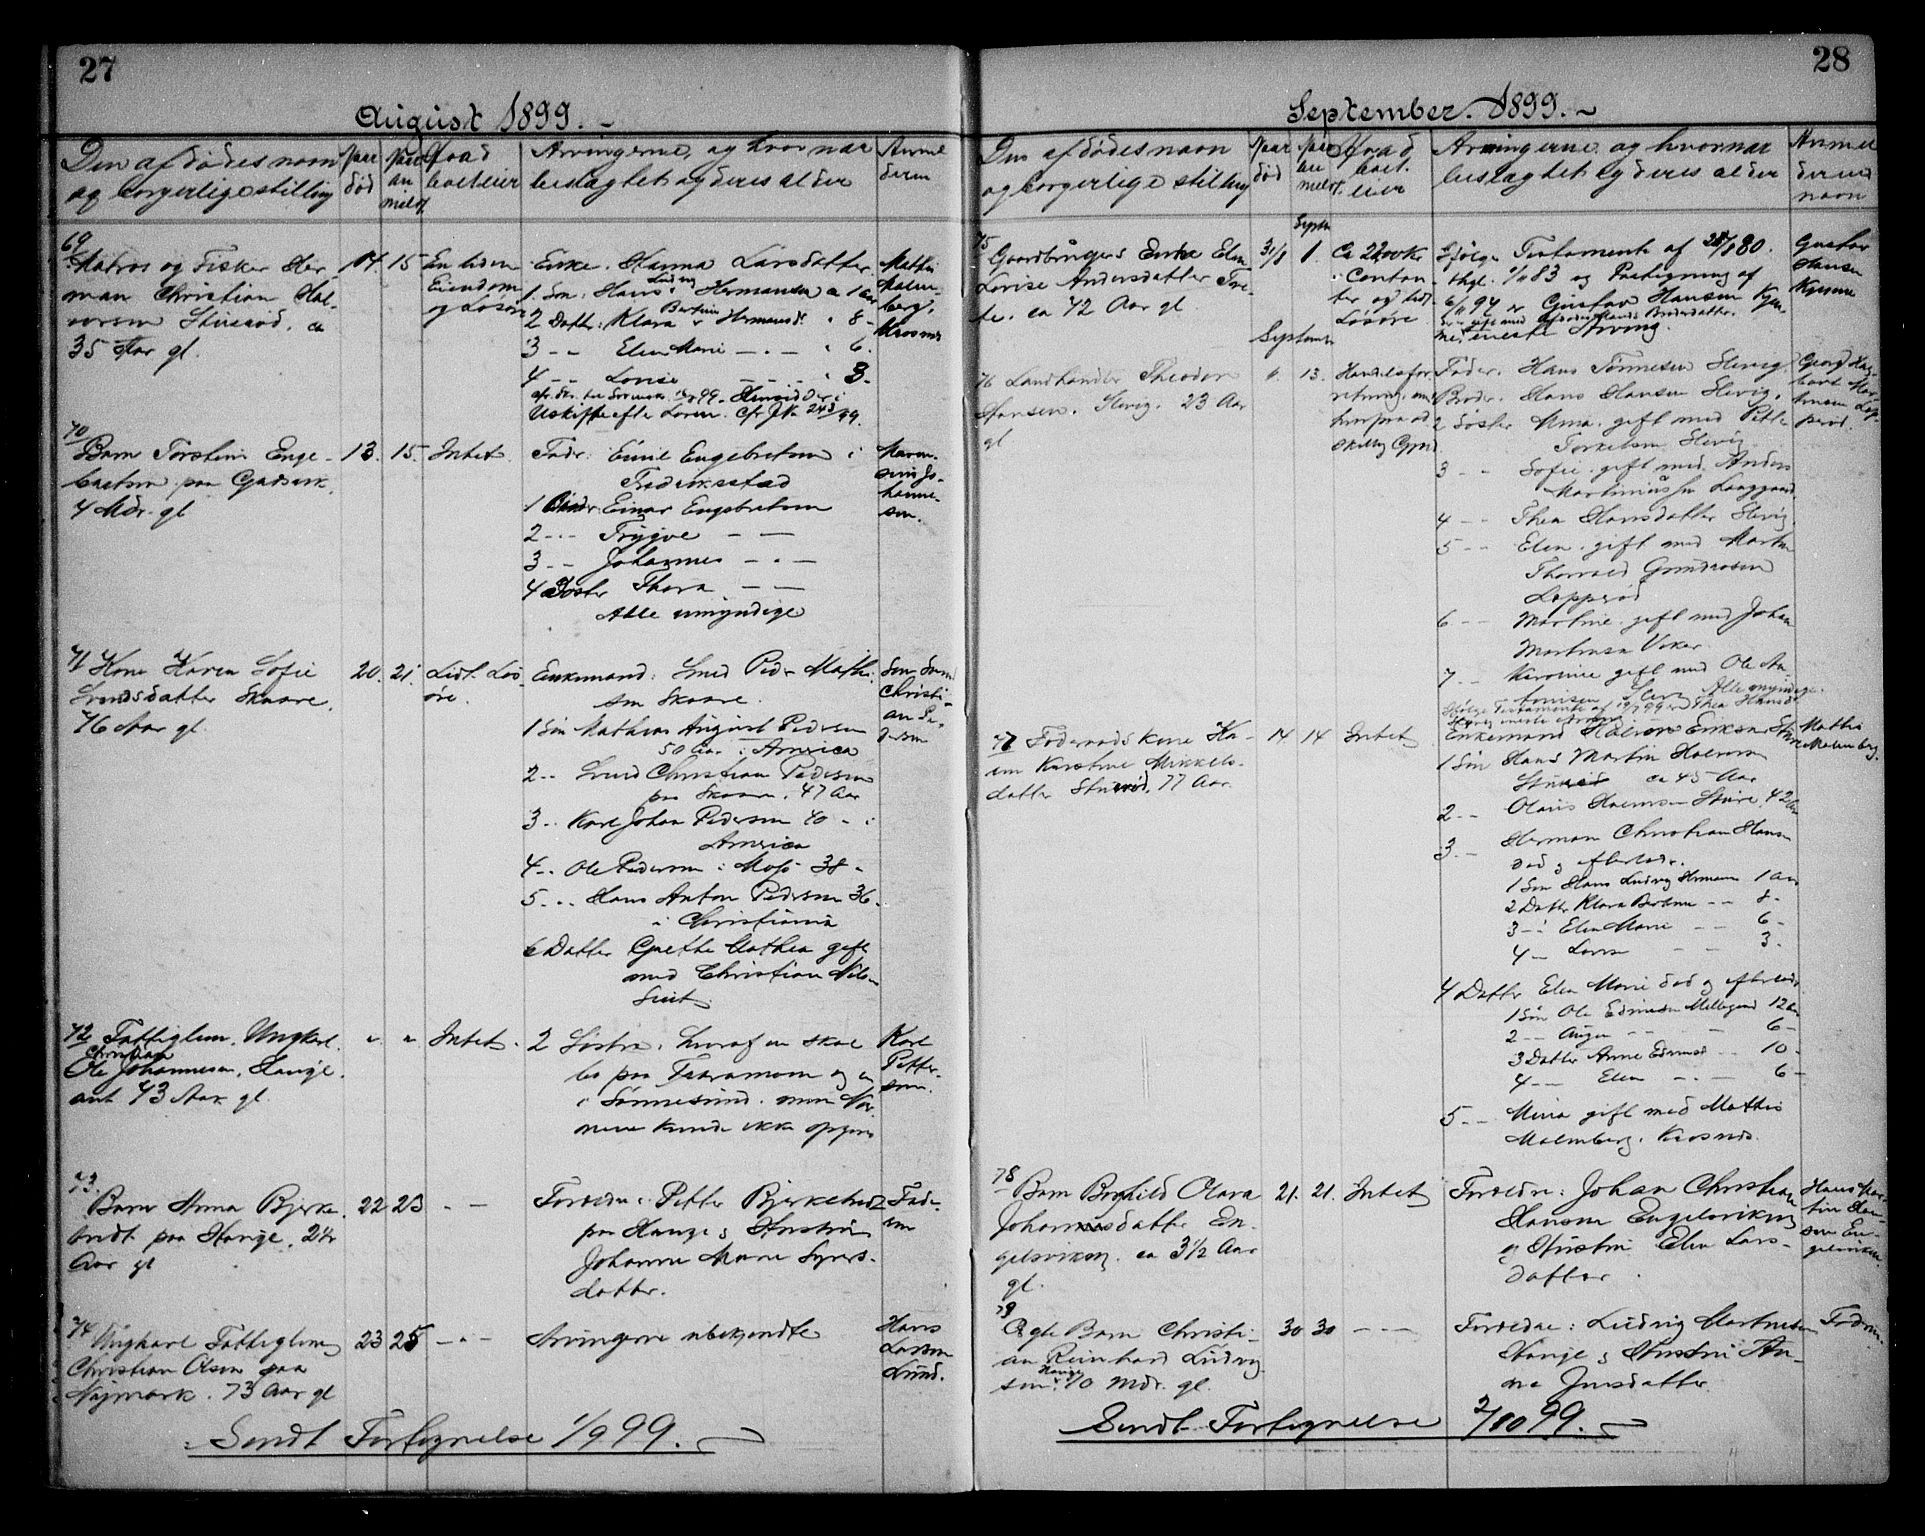 27
August 1899.
Den afdødes navn
og borgerlige stilling
Naar
død
Naar
an
meldt
Hvad
boet eier
Arvingerne, og hvor nær
beslægtet og deres alder
Anmel
deren
69
Matros og Fisker Her
man Christian Hal
vorsen Stuerød, ca
35 Aar gl.
14. 15
En liden
Eiendom
og Løsøre
Enke. Hanna Larsdatter
1. Søn: Hans Ludvig Hermansen a 1 Aar
2 Datter: Klara Bertine Hermansd. " 8 -
3 - - Elen Marie - . - " 6.
4 - - Lovise - - 3 -
Mathis
Malm-
berg,
Krosnes
70
Barn Torstein Enge-
bretsen paa
4 Mdr. gl
13. 15. Intet.
Fader: Emil Engebretsen i
Fredriksstad
1 Broder: Einar Engebretsen
2 - - Trygve - -
3 - - Johannes - . -
4 Søster Thora - -
Alle umyndige
Maren-
sius Jo-
hanne-
sen.
71 Kone Karen Sofie
datter Skaare.
76 Aar gl.
20. 21. Lidt Løs
øre.
Enkemand: Smed Peder Mathi-
sen Skaare.
1 Søn Mathias August Pedersen
50 Aar i America
2 - - Smed Christian Pedersen
paa Skaare, 47 Aar
3 - - Karl Johan Pedersen 40 - i
America
4 - - Ole Pedersen i Moss 38 -
5 - - Hans Anton Pedersen 36.
i Christiania
6 Datter Grethe Mathea gift
med Christian Nilsen
Søn Smed
Christi-
an Pe-
dersen
72 Fattiglem. Ungkarl.
Ole Christian Johannesen, Hauge.
ant 43 Aar gl.
" " Intet.
2 Søstre, hvoraf en skal
bo paa og en
i men Nav
nene kunde ikke opgives
Karl
Petter-
sen.
73.
Barn Anna Bjerke
bredt paa Hauge. 2½
Aar gl
22 23 - -
Forældre: Petter Bjerkebredt
paa Hauge & Hustru
Johanne Marie Syvers-
datter.
Fade-
ren
74 Ungkarl Fattiglem
Christian Olsen paa
Nymark. 73 Aar gl
23 25 - . -
Arvingerne ubekjendte
Hans
Larsen
Lund.
Sendt Fortegnelse 1/9 99.
28
September 1899.
Den afdødes navn
og borgerlige stilling
Naar
død
Naar
an
meldt.
Hvad
boet
eier
Arvingerne og hvornær
beslægtet og deres alder
Anmel
derens
navn
75
Gaardbrugers Enke Elen
Lovise Andersdatter
ca 72 Aar gl
31/8
Septb.
1.
Ca 2200 Kr
i Contan
ter og lidt
Løsøre
Ifølge Testamente af 28/8 80.
thgl. 1/11 83 og Paategning af
6/11 94 er Gustav Hansen
eneste Arving.
Gustav
Hansen
September
76 Landhandler Theodor
Hansen. Slevig. 23 Aar
gl
6. 13.
Handelsfor
retning, om
hvorpaa od
Fader. Hans Tønnesen Slevig.
Broder. Hans Hansen Slevig.
2 Søster Anna. gift med Petter
Torkelsen Slevig
3 - - Sofie. gift med Anders
Martiniussen
4 - - Thea Hansdatter Slevig.
5 - - Elen. gift med Martin
Thorvald Gundersen
Lopperød
6 - - Martine. gift med Johan
Martinsen Viker.
7 - - Karoline gift med Ole An
Alle myndige.
Ifølge Testamente af 99 er Thea Hansd.
Slevig eneste Arving
Georg Hag-
bart Mar-
tinsen Lop-
perød.
77 Føderaadskone Ka-
ren Kirstine Mikkels-
datter Stuerød. 77 Aar.
14. 14 Intet
Enkemand Halvor Eriksen Stuerød
1 Søn Hans Martin Halvorsen
ca 45 Aar
2 - - Olaus Halvorsen 42 Aar
3. - Herman Christian Hansen
død & efterlader.
1 Søn Hans Ludvig Hermansen 1 Aar
2 Datter Klara Bertine - - 8 -
3 - - Elen Marie - - 6 -
4 - Lovise - - 3 -
4 Datter Elen Marie død og efterladt
1 Søn Ole Edvinsen 12 Aar
2 - - August - - 6 -
3 Datter Anne 10 -
4 - - Elen - . - 6 -
5 - - Mina gift med Mathis
Malmberg. Krosnes.
Mathis
Malmberg.
78
Barn Borghild Olava
Johannsdatter En-
gelsviken. ca 3½ Aar
gl.
21. 21. Intet
Forældre: Johan Christian
Hansen Engelsviken
og Hustru Elen Lars-
datter.
Hans Mar-
tin Han-
sen En-
gelsviken.
79
Ægte Barn Christi-
an Reinhard Ludvig
sen. Hauge 10 Mdr. gl.
30 30 - -
Forældre: Ludvig Martinsen
Hauge & Hustru An-
na Jensdatter.
Faderen.
Sendt Fortegnelse 2/10 99.